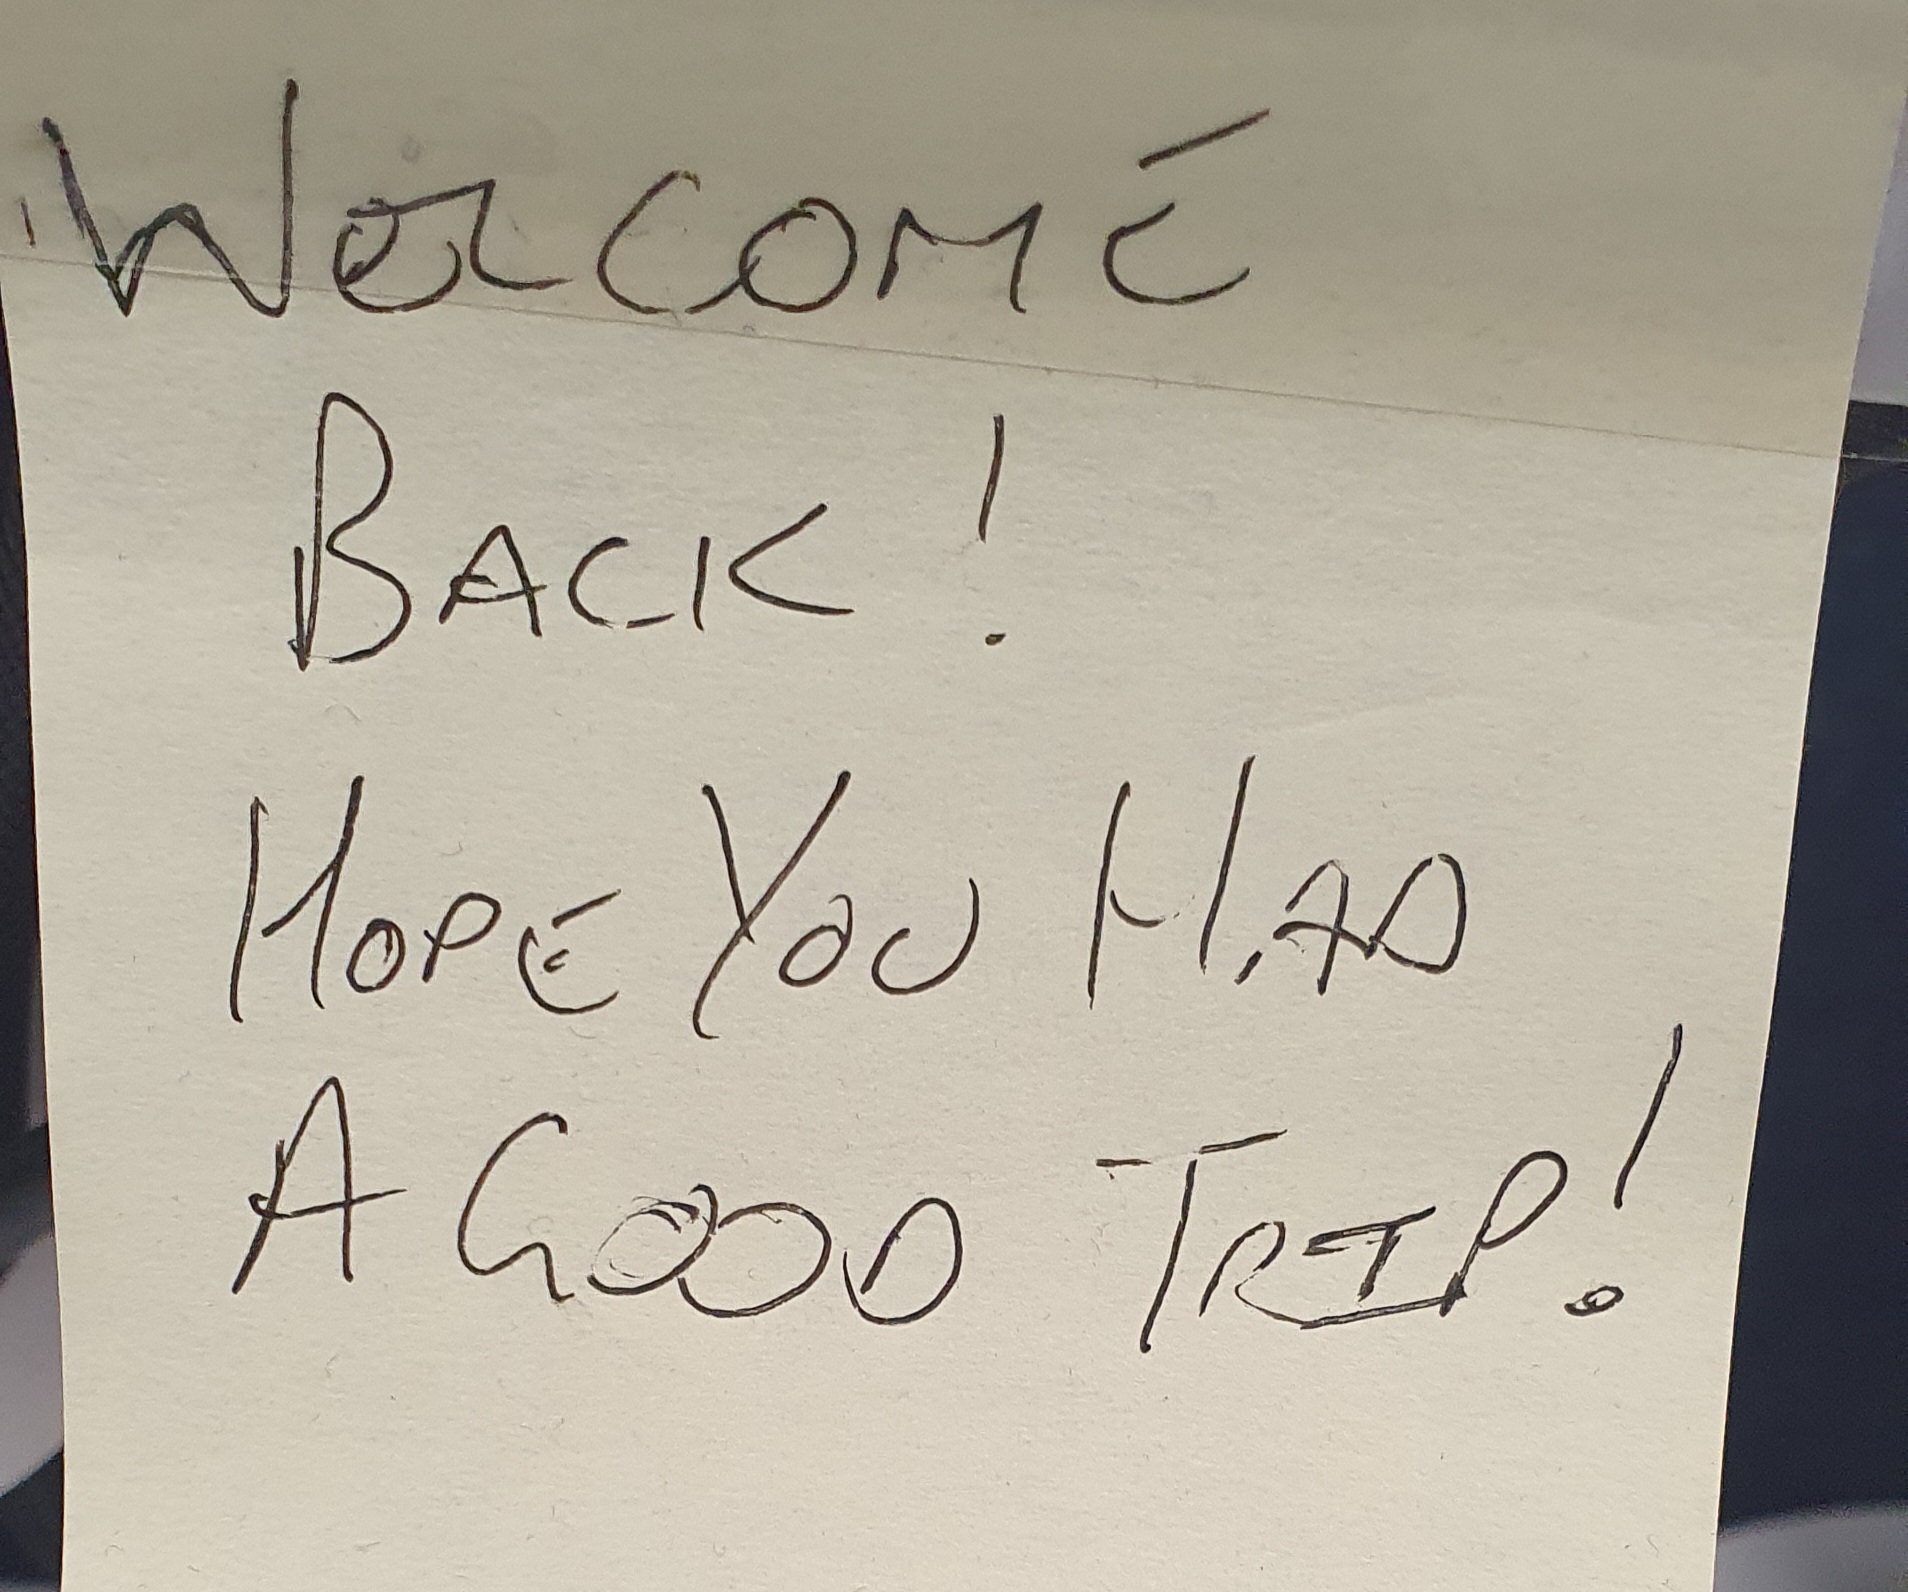 WELCOME
BACK!
HOPE YOU HAD
A GOOD TRIP!